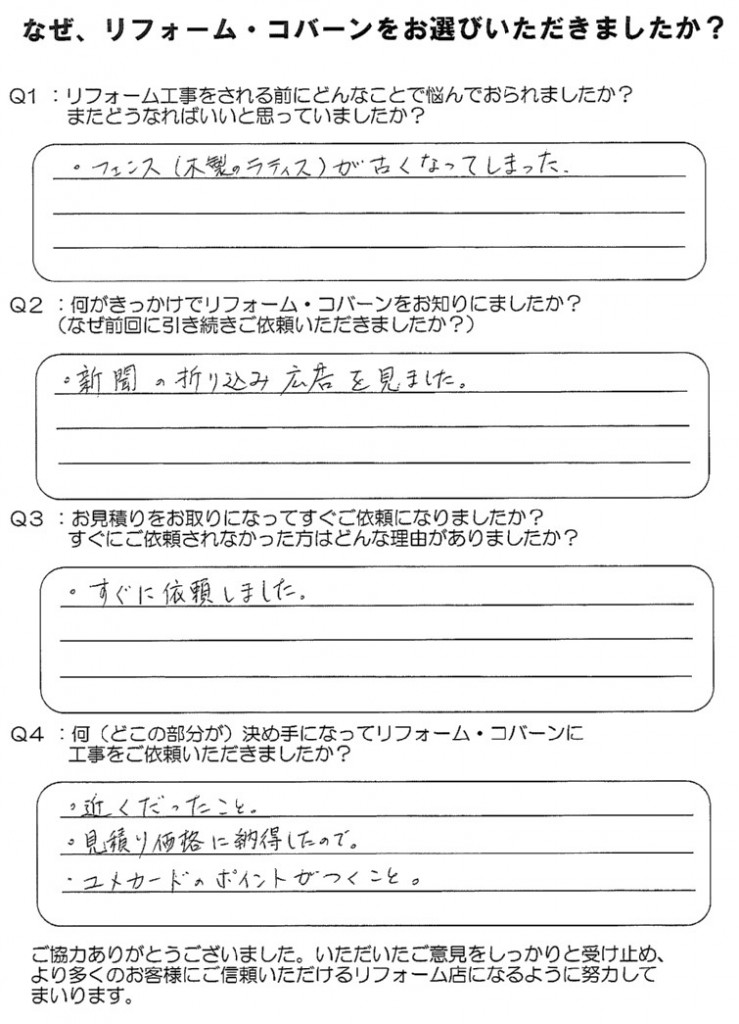 なぜ、リフォーム・コバーンをお選びいただきましたか？
Q1 ：リフォーム工事をされる前にどんなことで悩んでおられましたか？
またどうなればいいと思っていましたか？
・フェンス（木製のラティス）が古くなってしまった.
Q2 ：何がきっかけでリフォーム・コバーンをお知りにましたか？
（なぜ前回に引き続きご依頼いただきましたか？）
・新聞の折り込み広告を見ました。
Q3 ：お見積りをお取りになってすぐご依頼になりましたか？
すぐにご依頼されなかった方はどんな理由がありましたか？
・すぐに依頼しました。
Q4 ：何（どこの部分が）決め手になってリフォーム・コバーンに
工事をご依頼いただきましたか？
・近くだったこと。
・見積り価格に納得したので。
・ユメカードのポイントがつくこと。
ご協力ありがとうございました。いただいたご意見をしっかりと受け止め、
より多くのお客様にご信頼いただけるリフォーム店になるように努力して
まいります。